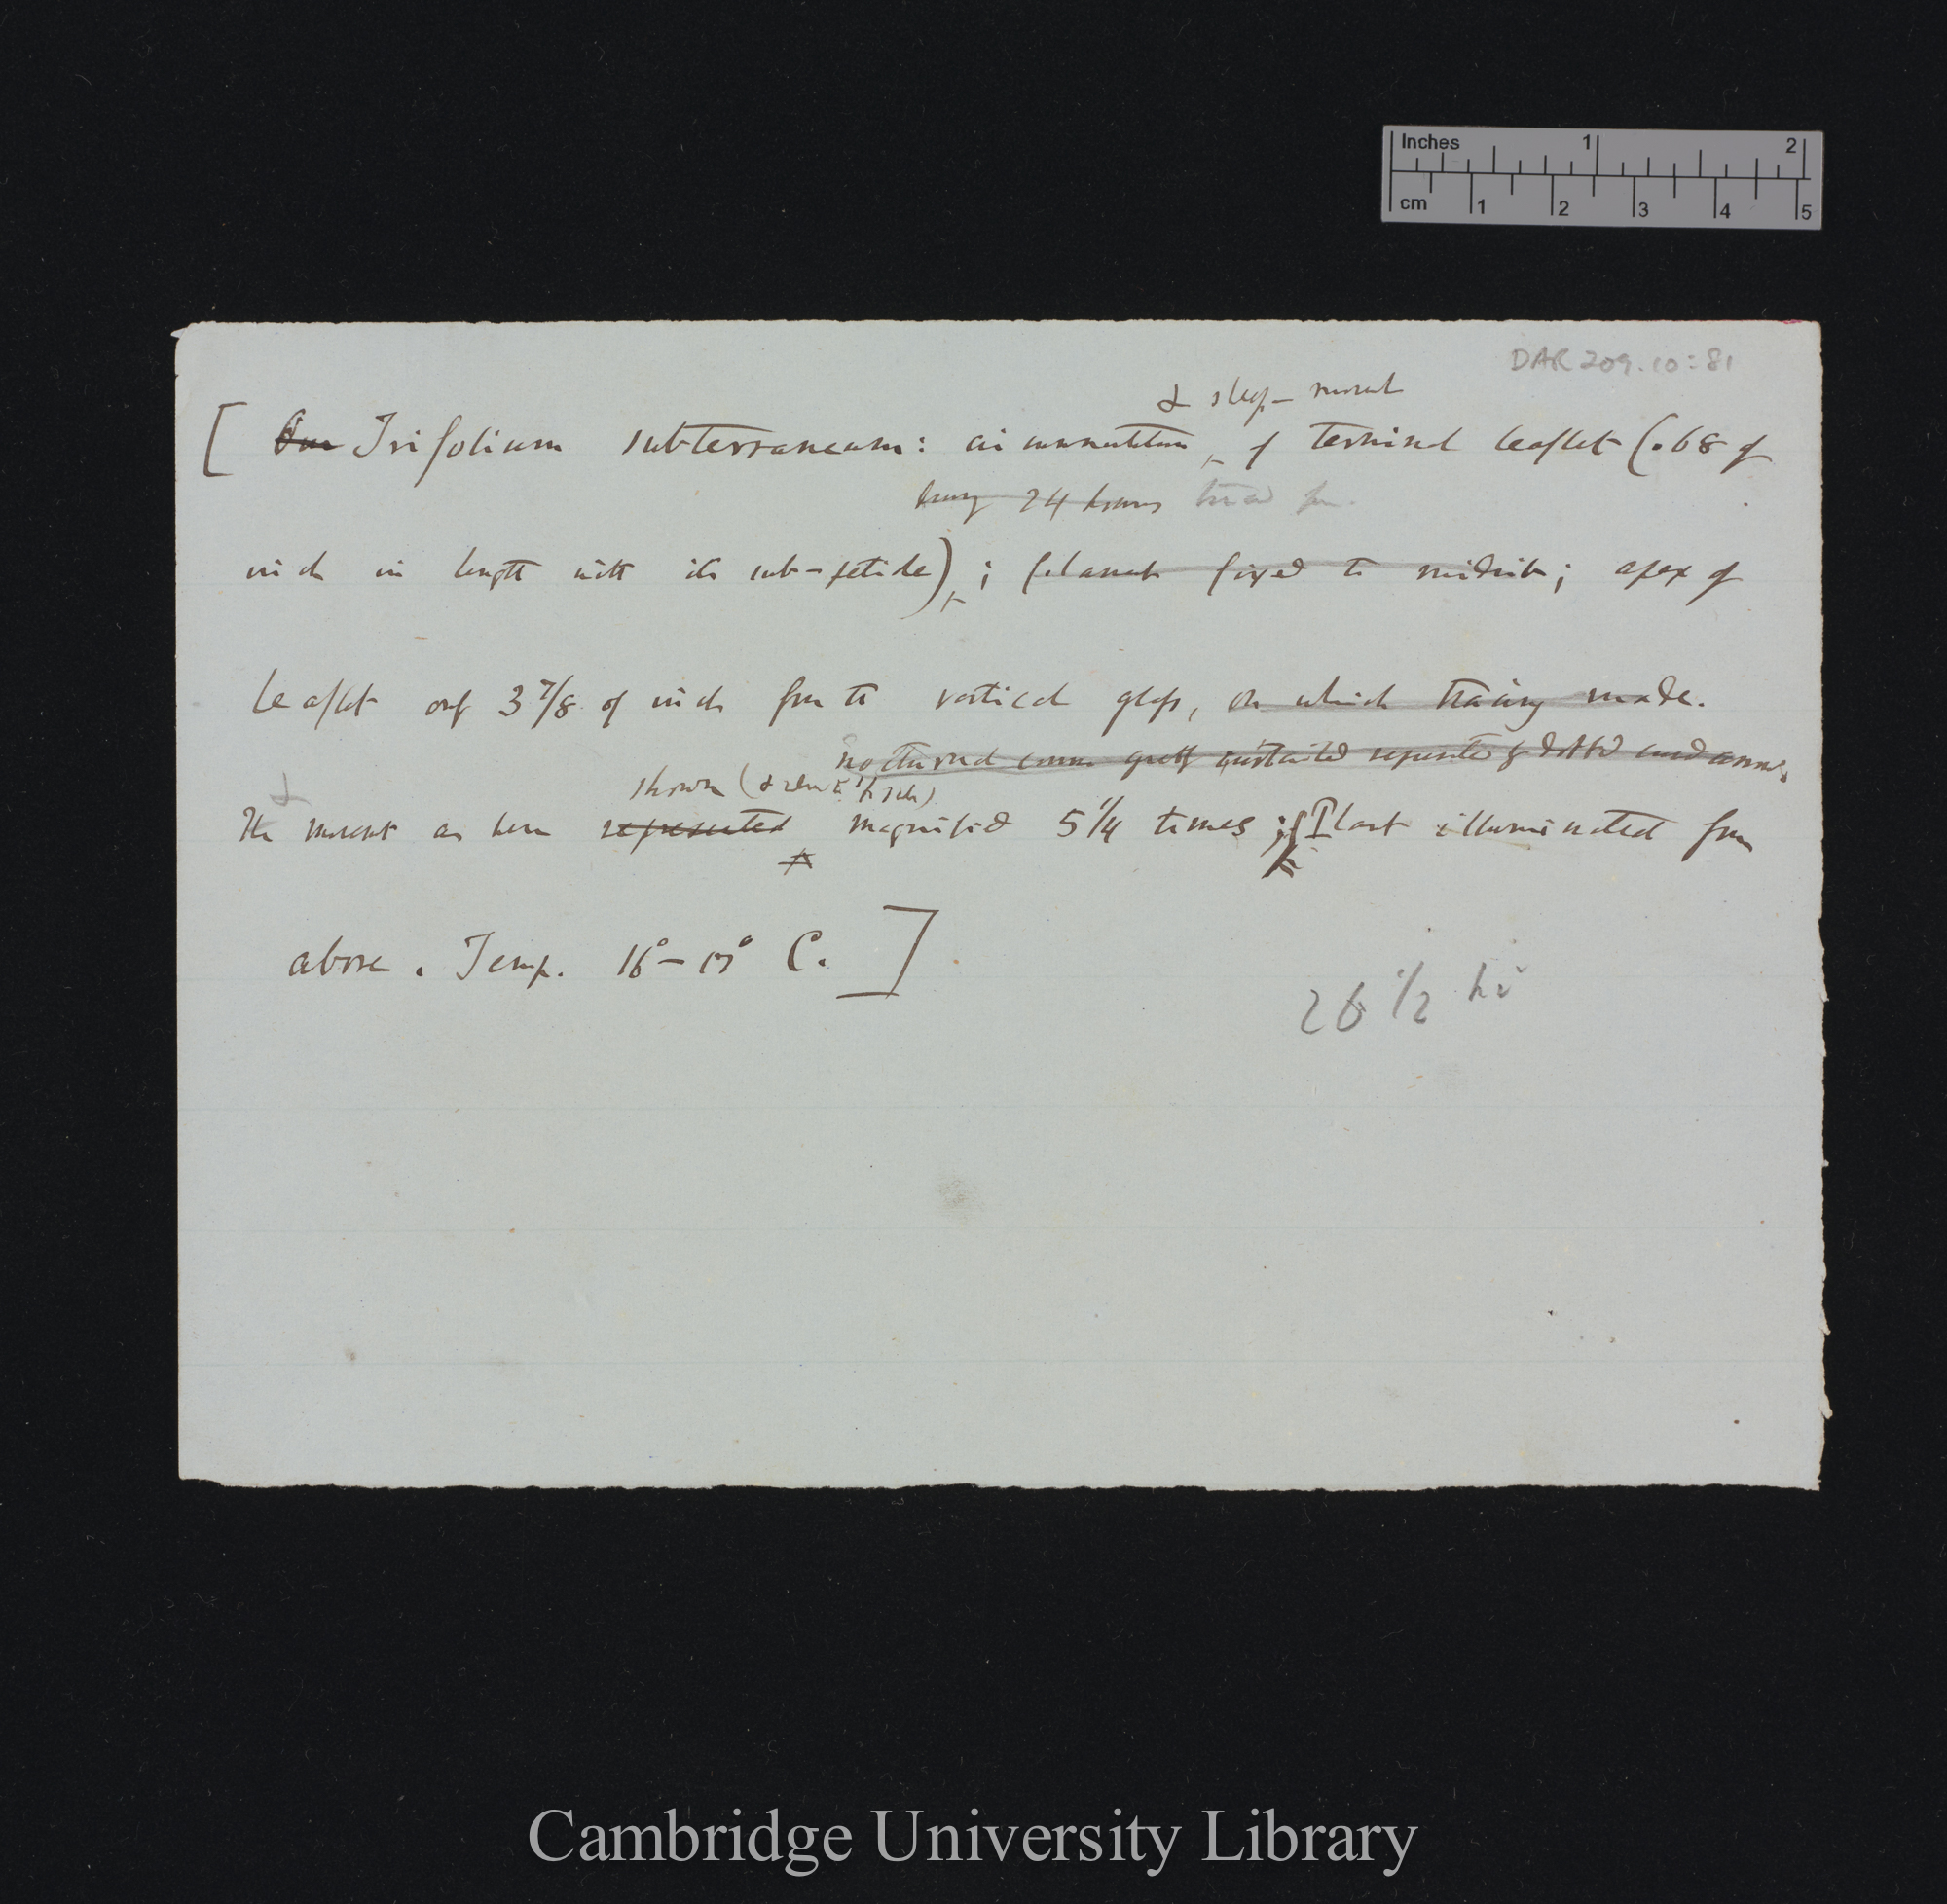 Inches 1 2
cm 1 2 3 4 5
DAR 209.10:81
& sleep-movement
[ Trifolium subterraneum: circumnutation of terminal leaflet (.68 of
during 24 hours traced from
inch in length with its sub-petiole); filament fixed to midrib; apex of
leaflet only 3 7/8 of inch from the vertical glass, on which tracing made.
nocturnal course greatly represented by dotted curved
&
shown (& reduced to 1/2 scale)
The movement as here represented magnified 5 1/4 times; Plant illuminated from
above. Temp. 16°-17° C. ]
26 1/2 hr
Cambridge University Library